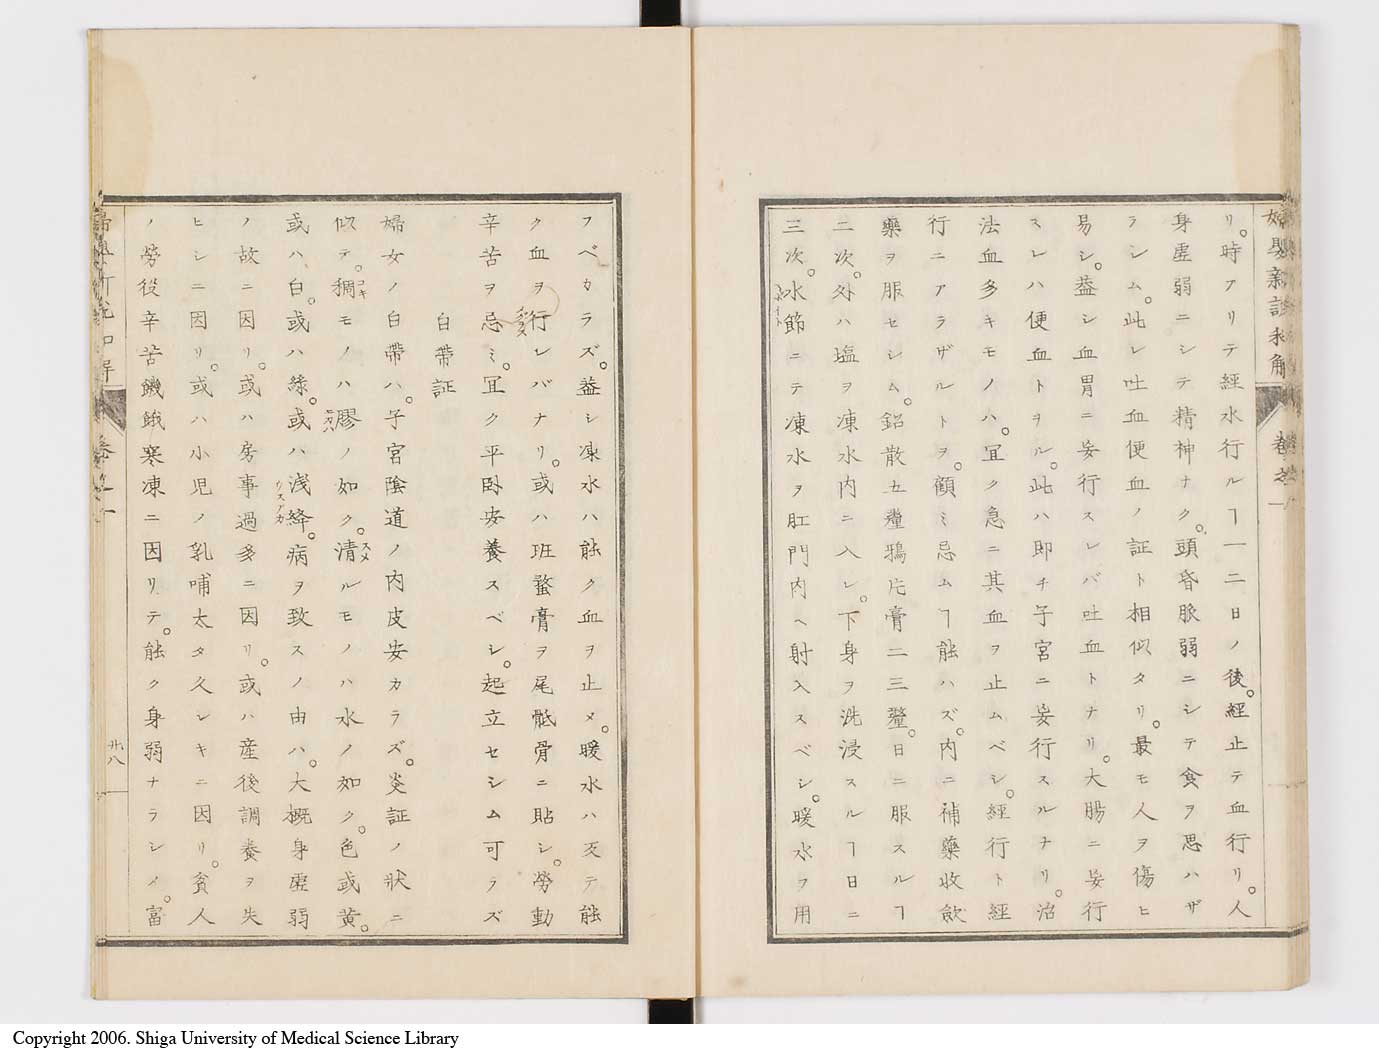 婦嬰新説和解 巻之一
リ。時アリテ經水行ルヿ一二日ノ後。經止テ血行リ。人
身虚弱ニシテ精神ナク。頭昏脈弱ニシテ食ヲ思ハザ
ラシム。此レ吐血便血ノ証ト相似タリ。最モ人ヲ傷ヒ
易シ。葢シ血胃ニ妄行スレバ吐血トナリ。大腸ニ妄行
スレハ便血トヲル。此ハ即チ子宮ニ妄行スルナリ。治
法血多キモノハ。冝ク急ニ其血ヲ止ムベシ。經行ト經
行ニアラザルトヲ。顧ミ忌ムヿ能ハズ。内ニ補藥收飲
藥ヲ服セシム。鉛散五釐鴉片膏二三釐。日ニ服スルヿ
二次。外ハ塩ヲ凍水内ニ入レ。下身ヲ洗浸スルヿ日ニ
三次。水節ニテ凍水ヲ肛門内ヘ射入スベシ。暖水ヲ用
フベカラズ。葢シ凍水ハ能ク血ヲ止メ。暖水ハ反テ能
ク血ヲ行レバナリ。或ハ班蝥膏ヲ尾骶骨ニ貼シ。勞動
辛苦ヲ忌ミ。冝ク平臥安養スベシ。起立セシム可ラズ
白帶証
婦女ノ白帶ハ。子宮陰道ノ内皮安カラズ。炎証ノ狀ニ
似テ。稠モノハ膠ノ如ク。清ルモノハ水ノ如ク。色或黄。
或ハ白。或ハ綠。或ハ浅絳。病ヲ致スノ由ハ。大概身虚弱
ノ故ニ因リ。或ハ房事過多ニ因リ。或ハ産後調養ヲ失
ヒシニ因リ。或ハ小児ノ乳哺太タ久シキニ因リ。貧人
ノ勞役辛苦饑餓寒凍ニ因リテ。能ク身弱ナラシメ。富
巻之一
廾八
Copyright 2006. Shiga University of Medical Science Library